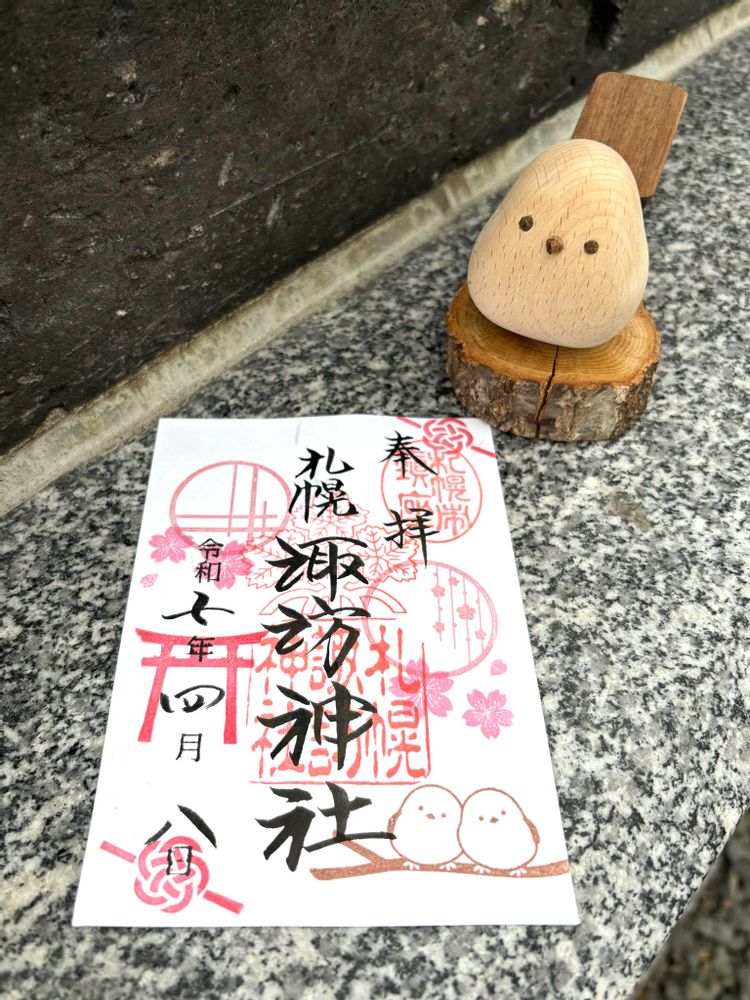 奉拝
札幌市
鎮座
札幌諏訪神社
札幌
諏訪
神社
令和七年四月八日